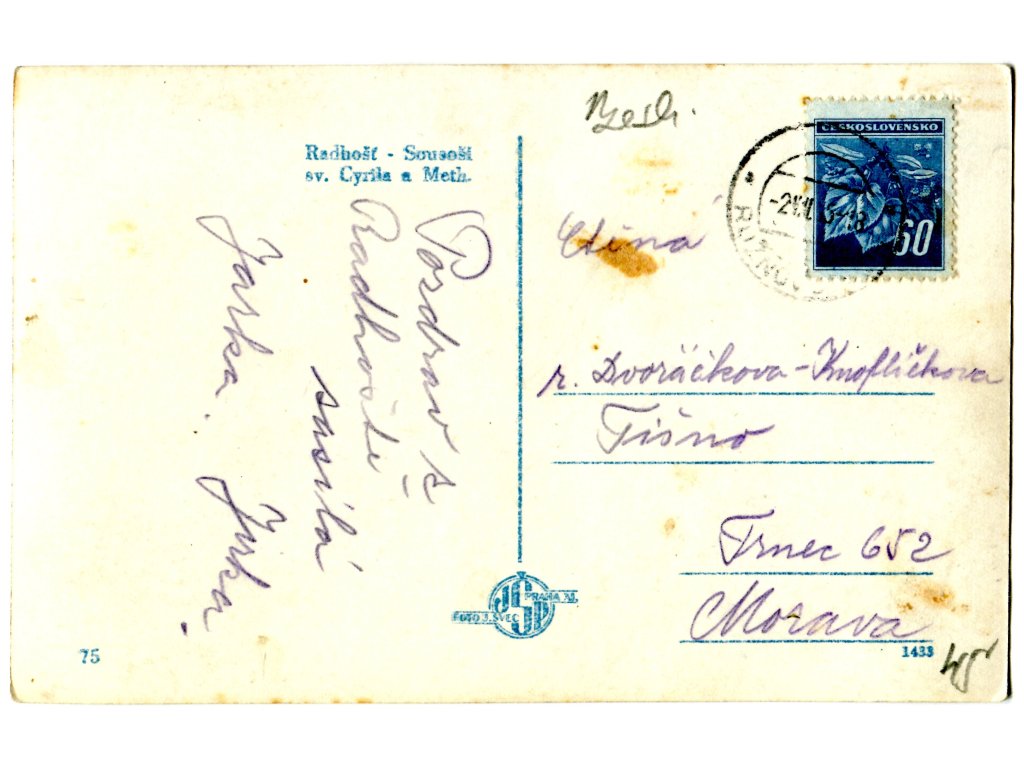 Radhošť - Sousoší
sv. Cyrila a Meth.
Pozdrav z
Radhoště
zasílá
Jarka. Jirka.
ČESKOSLOVENSKO
60
-2 -18
Ctěná
r. Dvořáčkova-Knoflíčkova
Tišno
Trnec 652
Morava
JŠP
PRAHA XI.
FOTO J. ŠVEC
75
1433